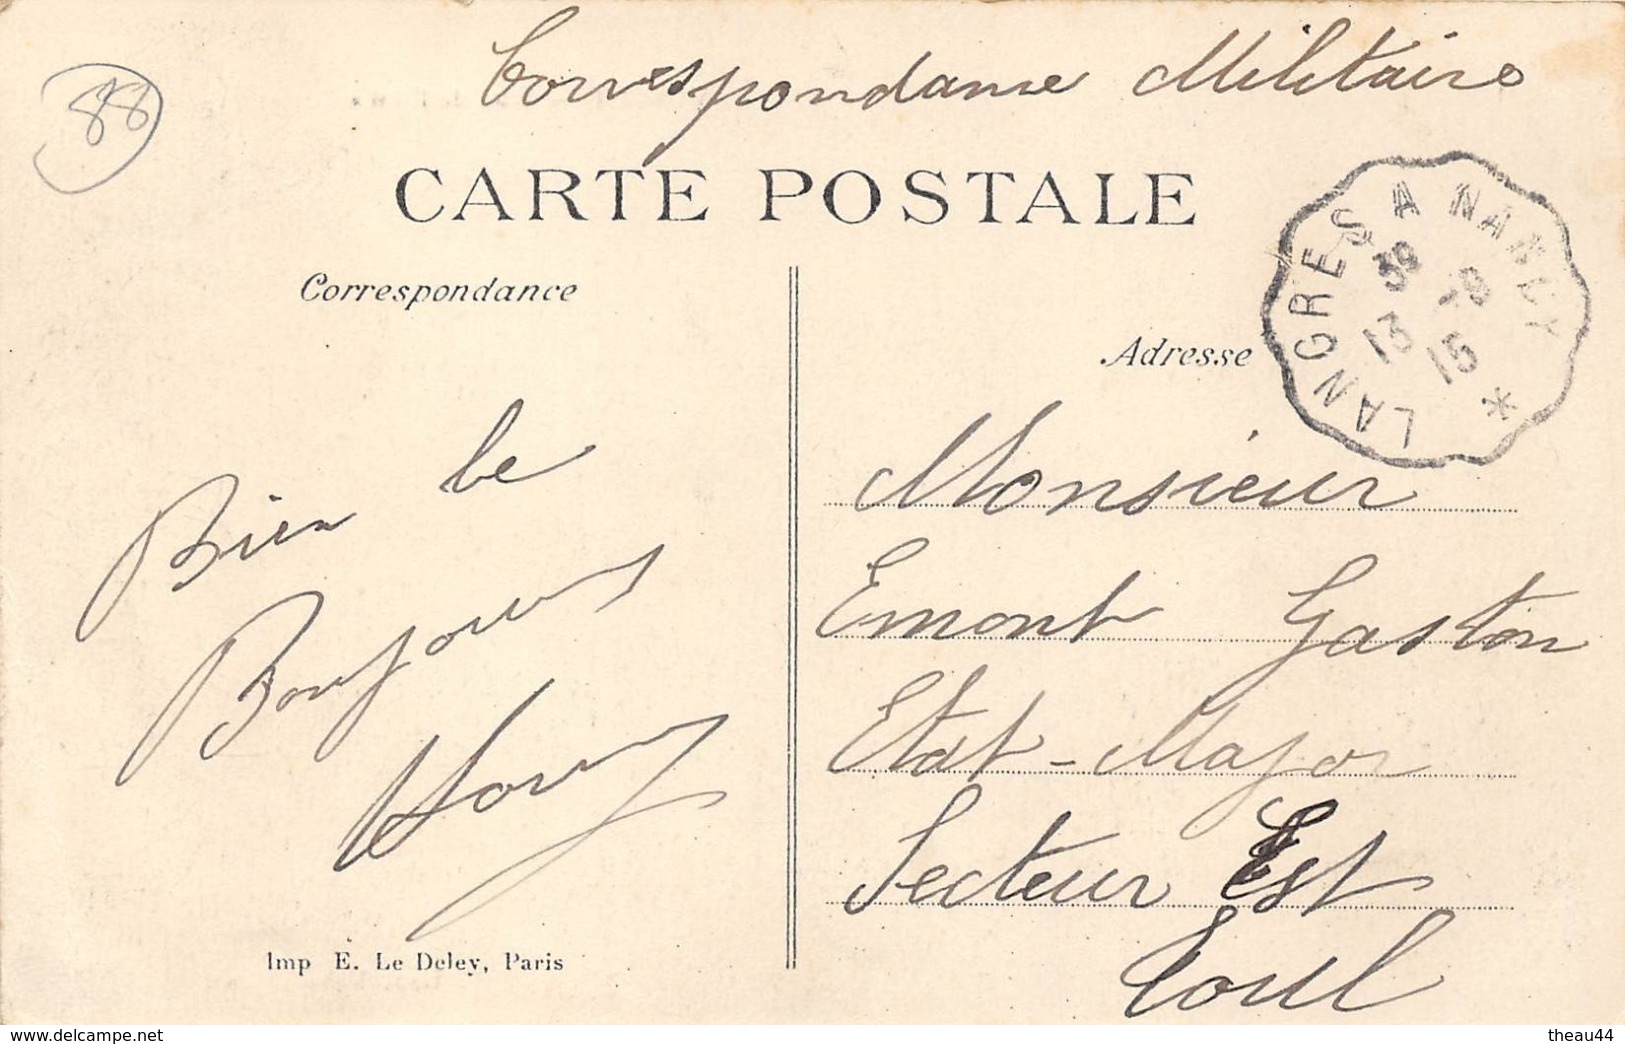 88
Correspondance Militaire
CARTE POSTALE
Correspondance
Adresse
LANGRES A NANCY *
13 -8
15
Bien le
Bonjour
Monsieur
Emont Gaston
Etat-Major
Secteur Est
Toul
Imp E. Le Deley, Paris
https://www.delcampe.net
theau44